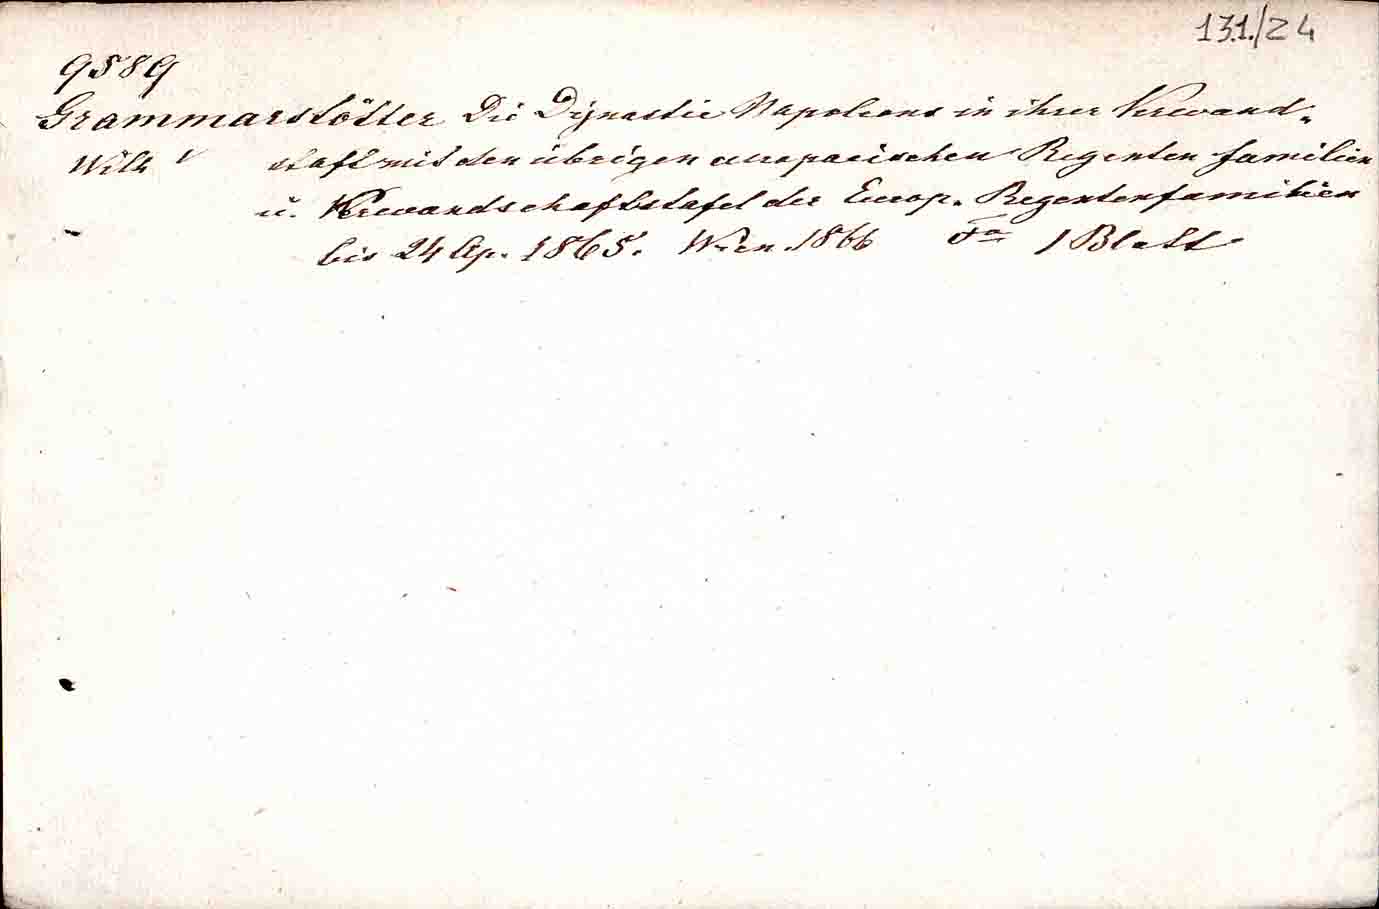 131./24
9589
Grammarstötter Die Dijnastie Napoleons in ihrer Verwand„
Wilh v staft mit den übrigen europaeischen Regenten familien
u. Verwandschaftstafel der Europ. Regentenfamilien
bis 24 Ap. 1865. Wien 1866 Fo 1 Blatt